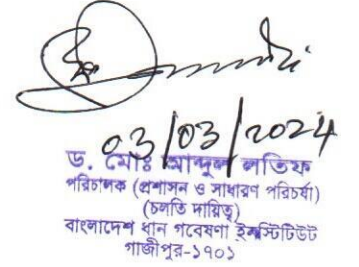 03/03/2024
ড. মোঃ আব্দুল লতিফ
পরিচালক (প্রশাসন ও সাধারণ পরিচর্যা)
(চলতি দায়িত্ব)
বাংলাদেশ ধান গবেষণা ইনস্টিটিউট
গাজীপুর-১৭০১